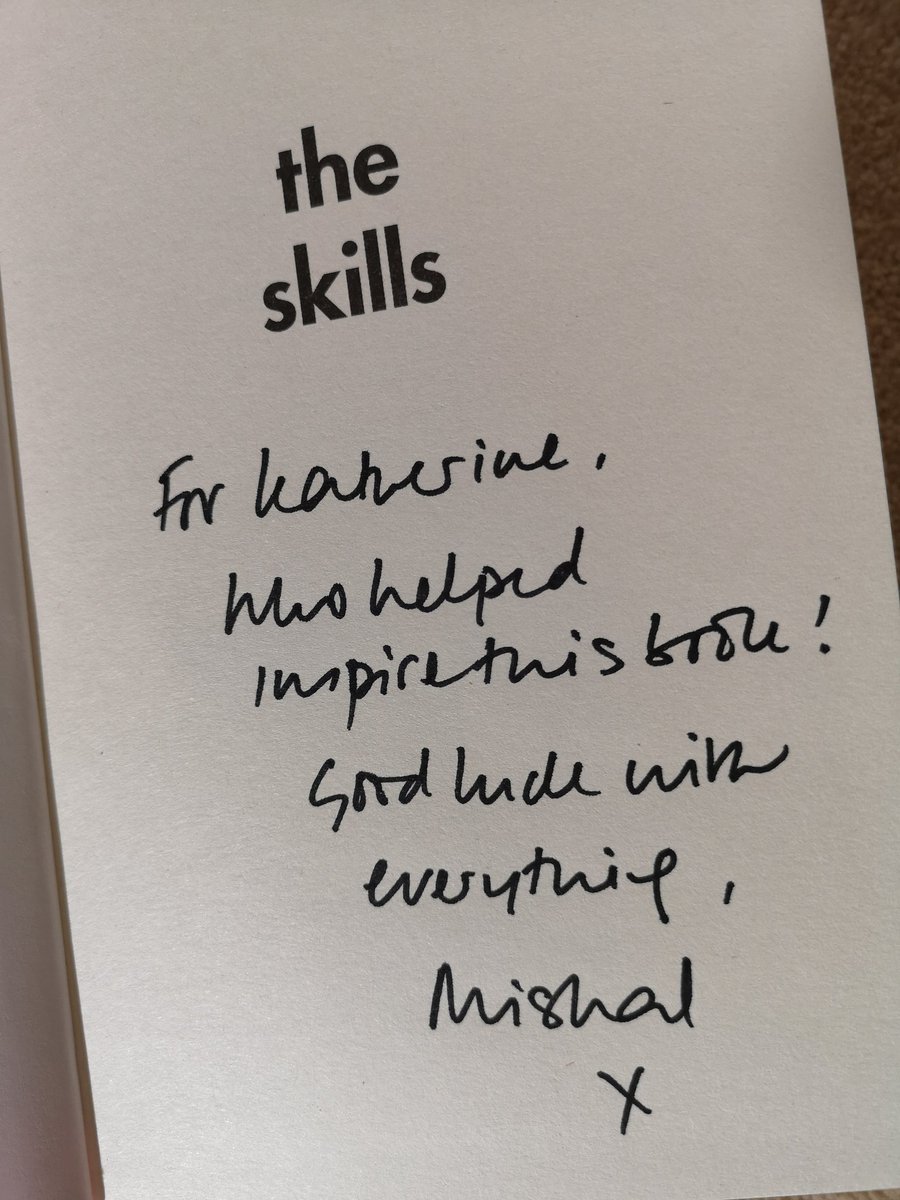 the
skills
For Katherine,
who helped
inspire this book!
Good luck with
everything,
Mishal
X